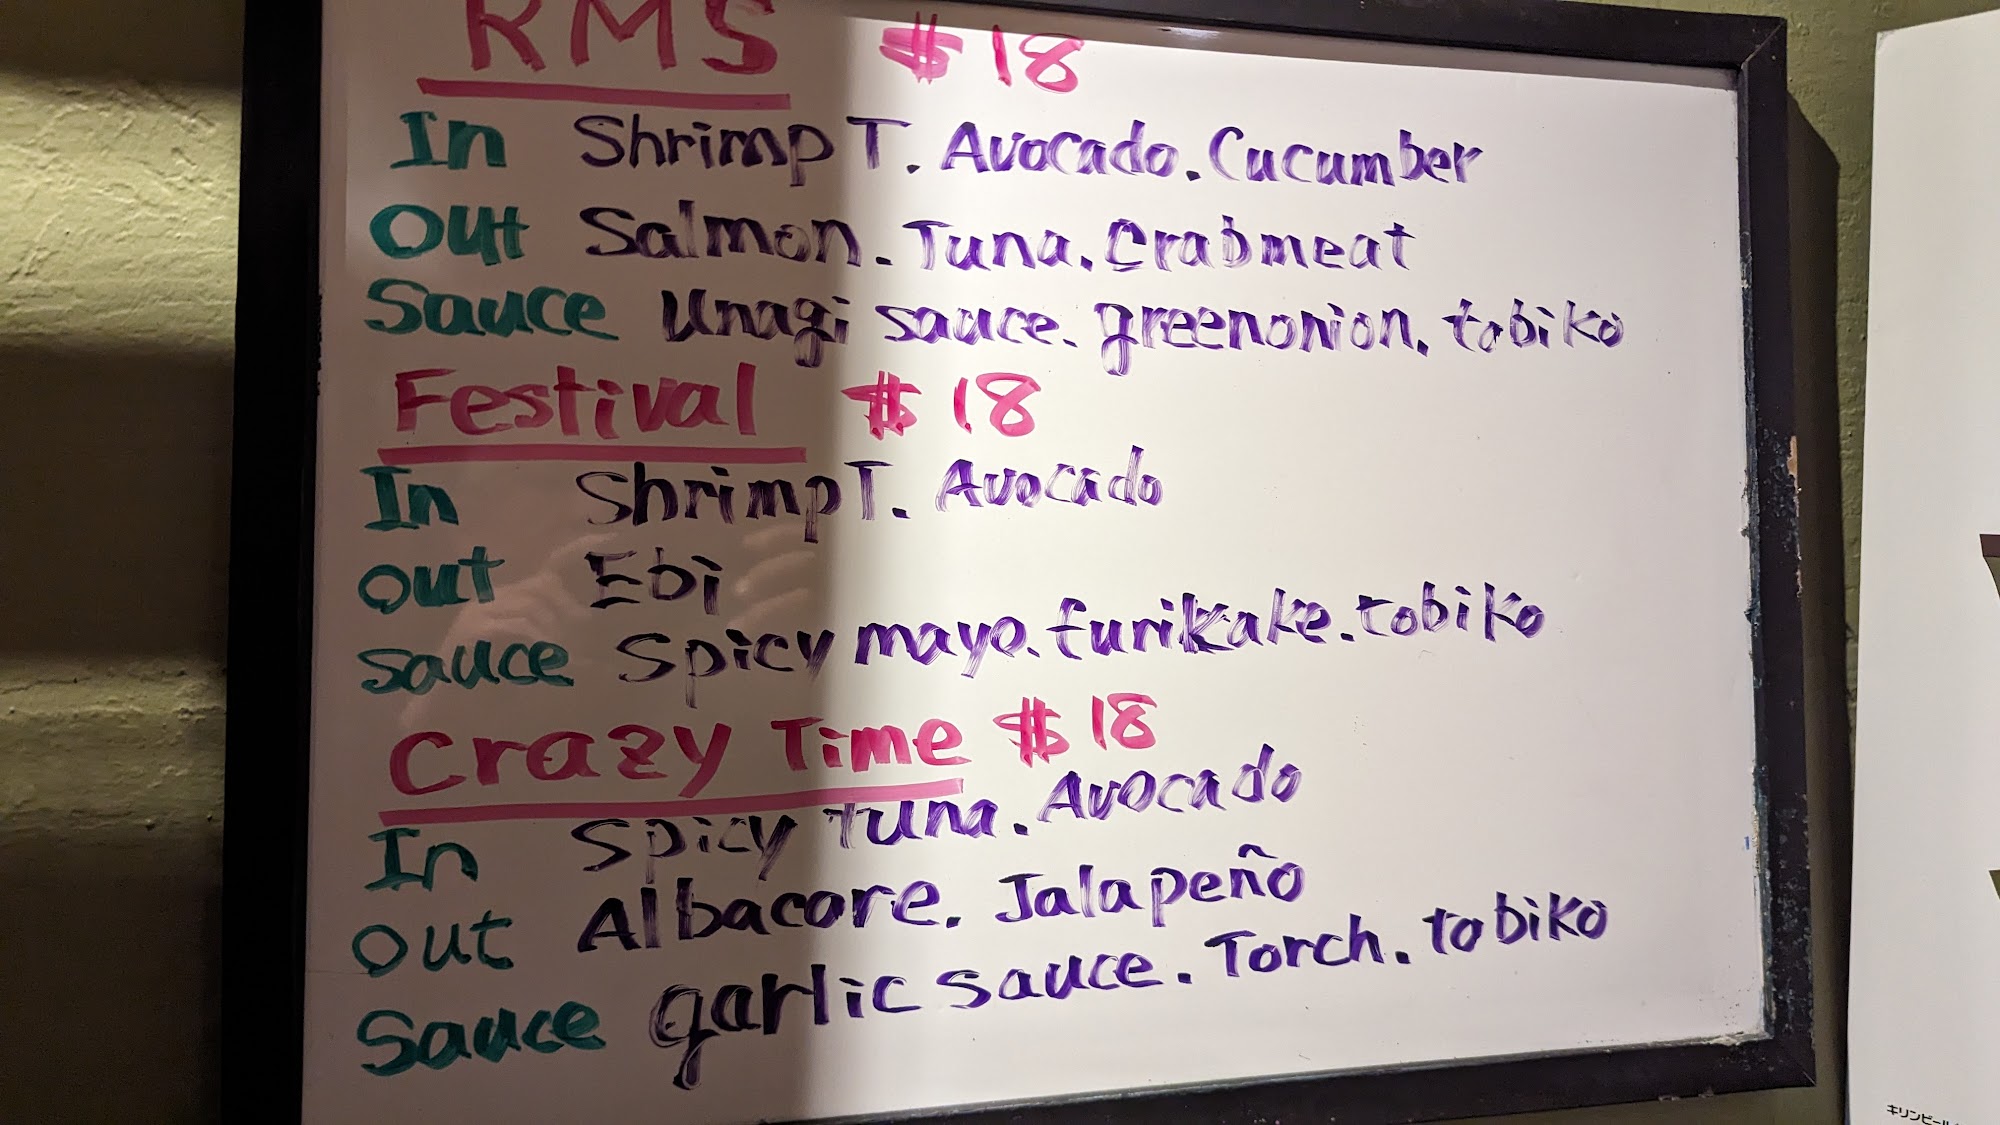 RMS $18
In Shrimp T. Avocado. Cucumber
Out Salmon. Tuna. Crabmeat
Sauce Unagi sauce. greenonion. tobiko
Festival $18
In Shrimp T. Avocado
Out Ebi
Sauce Spicy mayo. furikake. tobiko
Crazy Time $18
In Spicy tuna. Avocado
Out Albacore. Jalapeño
Sauce garlic sauce. Torch. tobiko
キリンビール